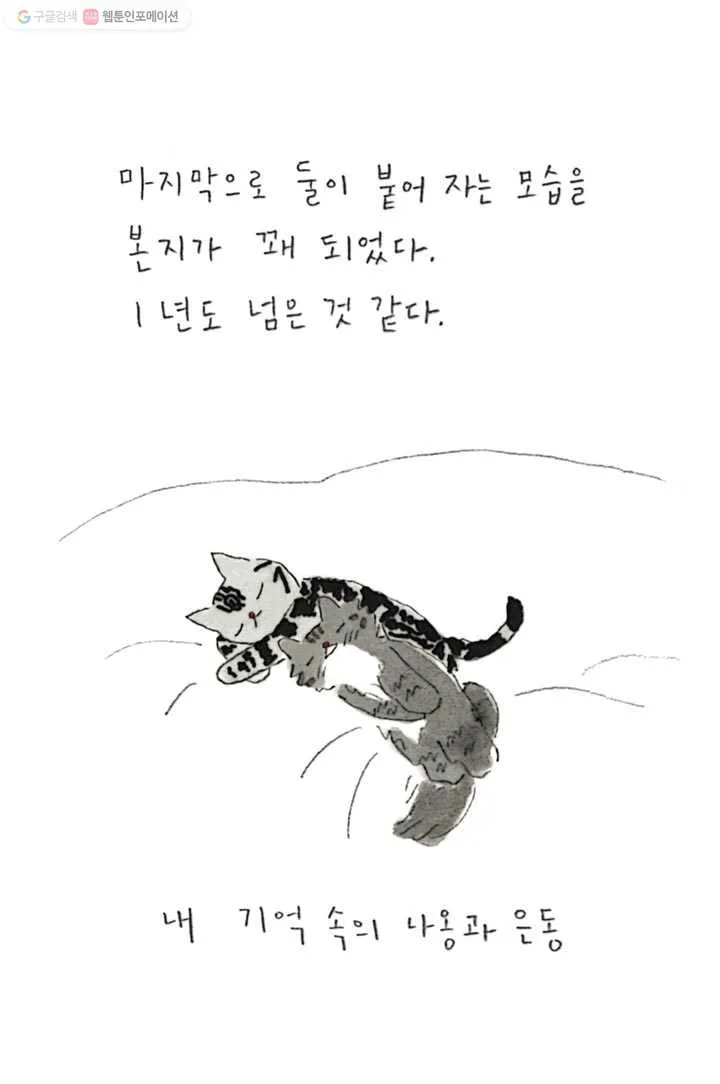 구글검색 웹툰인포메이션
마지막으로 둘이 붙어 자는 모습을
본지가 꽤 되었다.
1년도 넘은 것 같다.
내 기억 속의 나옹과 은동